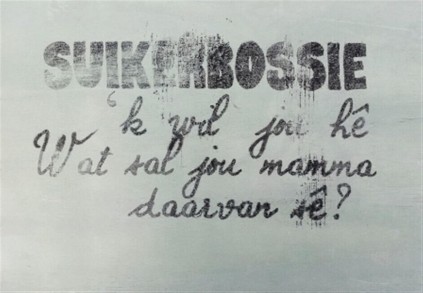 SUIKERBOSSIE
'k wil jou hê
Wat sal jou mamma
daarvan sê?